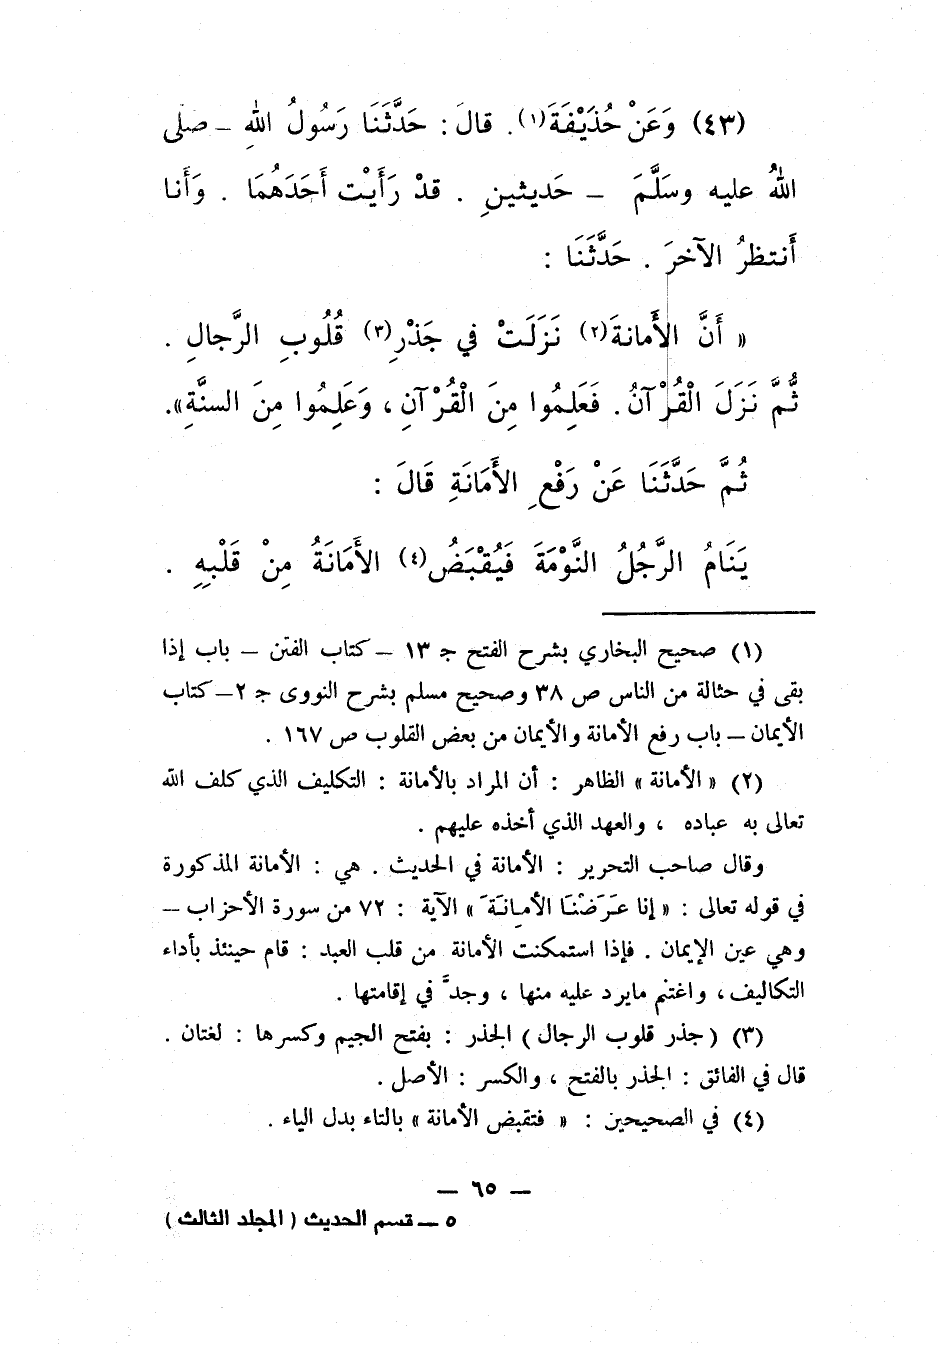 (٤٣) وَعَنْ حُذَيْفَةَ(١). قالَ : حَدَّثَنَا رَسُولُ اللهِ – صلى
اللهُ عليه وسَلَّمَ – حَديثينِ . قدْ رَأَيْت أَحَدَهُمَا . وَأَنا
أَنتظرُ الآخرَ . حَدَّثَنَا :
« أَنَّ الأَمانةَ(٢) نَزَلَتْ في جَذْرِ(٣) قُلُوبِ الرَّجالِ .
ثُّمَّ نَزَلَ الْقُرْآنُ. فَعَلِمُوا مِنَ الْقُرْآنِ ، وَعَلِمُوا مِنَ السنَّةِ».
ثُمَّ حَدَّثَنَا عَنْ رَفْعِ الأَمَانَةِ قَالَ :
يَنَامُ الرَّجُلُ النَّوْمَةَ فَيُقْبَضُ(٤) الأَمَانَةُ مِنْ قَلْبِهِ .
(١) صحيح البخاري بشرح الفتح جـ ١٣ – كتاب الفتن – باب إذا
بقى في حثالة من الناس ص ٣٨ وصحيح مسلم بشرح النووى جـ ٢– كتاب
الأيمان – باب رفع الأمانة والأيمان من بعض القلوب ص ١٦٧ .
(٢) « الأمانة » الظاهر : أن المراد بالأمانة : التكليف الذي كلف الله
تعالى به عباده ، والعهد الذي أخذه عليهم .
وقال صاحب التحرير : الأمانة في الحديث . هي : الأمانة المذكورة
في قوله تعالى : « إنا عَرَضْنَا الأمانَةَ » الآية : ٧٢ من سورة الأحزاب –
وهي عين الإيمان . فإذا استمكنت الأمانة من قلب العبد : قام حينئذ بأداء
التكاليف ، واغتنم مايرد عليه منها ، وجدَّ في إقامتها .
(٣) ( جذر قلوب الرجال ) الجذر : بفتح الجيم وكسرها : لغتان .
قال في الفائق : الجذر بالفتح ، والكسر : الأصل .
(٤) في الصحيحين : « فتقبض الأمانة » بالتاء بدل الياء .
– ٦٥ –
٥ – قسم الحديث ( المجلد الثالث )